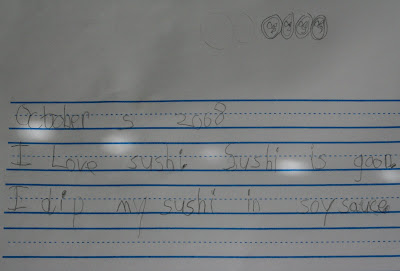 October 5 2008
I Love sushi. Sushi is good.
I dip my sushi in soy sauce